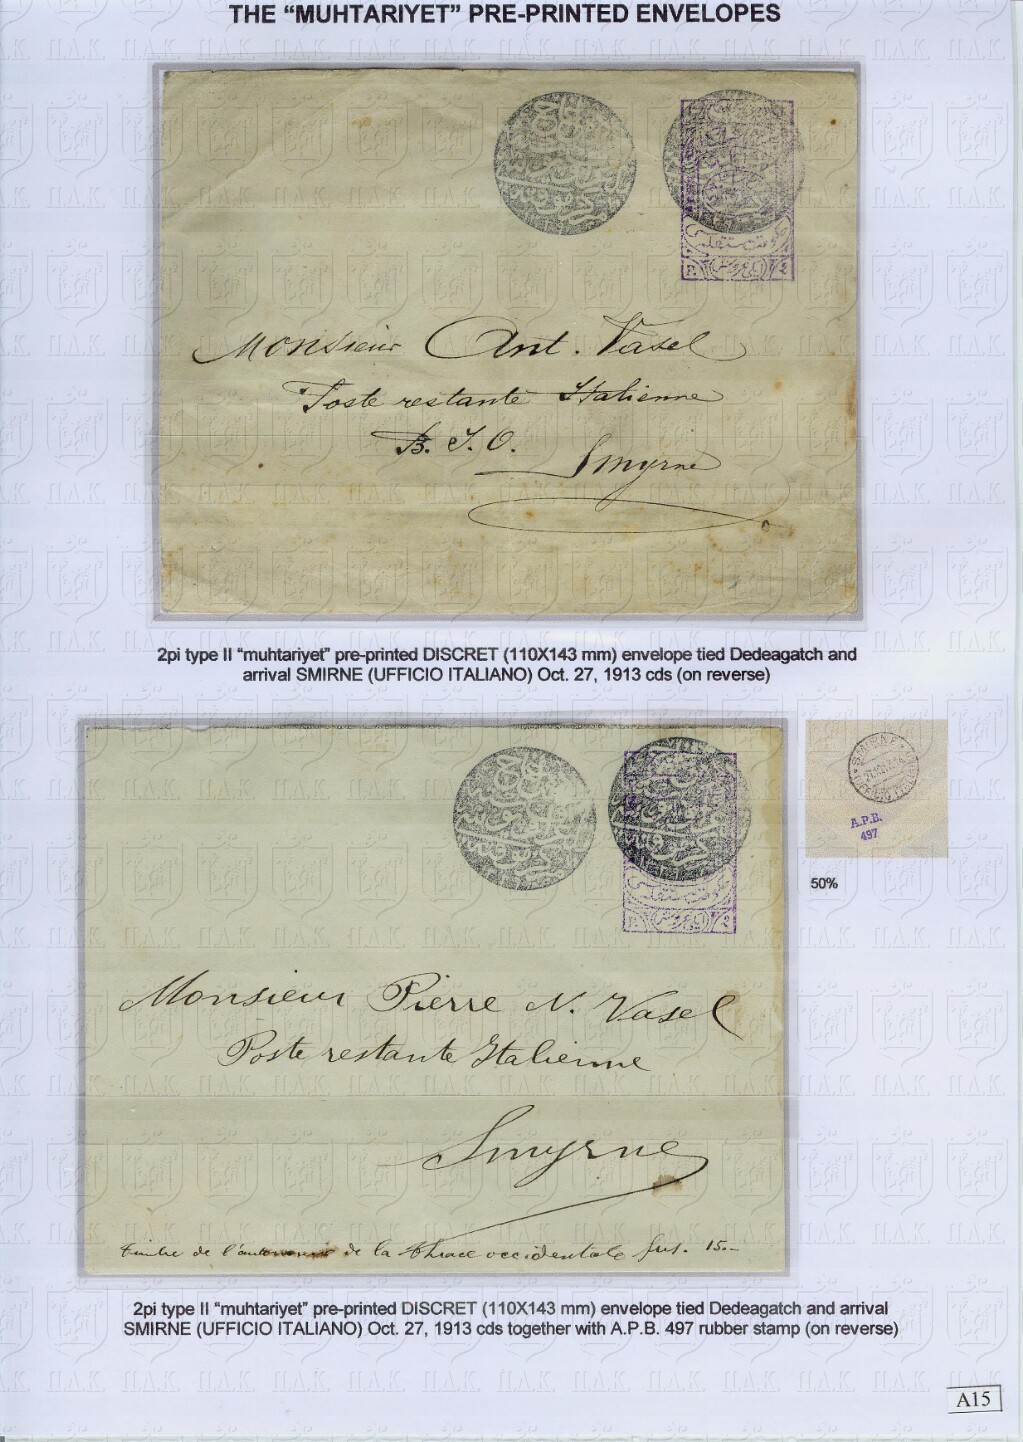 THE “MUHTARIYET” PRE-PRINTED ENVELOPES
حكومت مستقله
Monsieur Ant. Vasel
Poste restante Italienne
B. I. O.
Smyrne
2pi type II “muhtariyet” pre-printed DISCRET (110X143 mm) envelope tied Dedeagatch and
arrival SMIRNE (UFFICIO ITALIANO) Oct. 27, 1913 cds (on reverse)
A.P.B.
497
50%
Monsieur Pierre N. Vasel
Poste restante Italienne
Smyrne
timbre de l'autonomie de la thrace occidentale frs. 15.-
2pi type II “muhtariyet” pre-printed DISCRET (110X143 mm) envelope tied Dedeagatch and arrival
SMIRNE (UFFICIO ITALIANO) Oct. 27, 1913 cds together with A.P.B. 497 rubber stamp (on reverse)
A15
П.А.К.